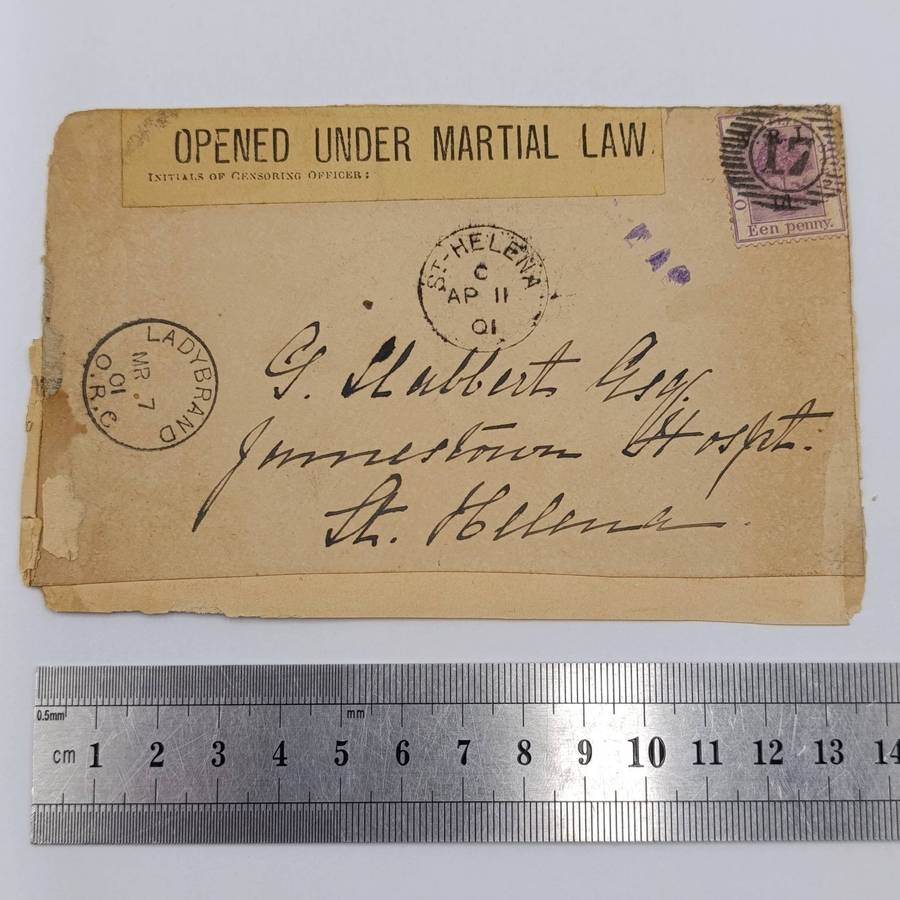 OPENED UNDER MARTIAL LAW.
INITIALS OF CENSORING OFFICER:
17
Een penny.
ST-HELENA
C
AP 11
01
LADYBRAND
MR. 7
01
O.R.C
G. Slabbert Esq.
Jamestown Hospt:
St. Helena.
0.5mm mm
cm 1 2 3 4 5 6 7 8 9 10 11 12 13 14